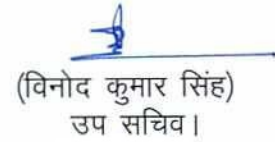 (विनोद कुमार सिंह)
उप सचिव।